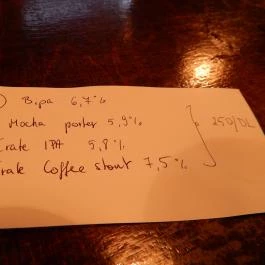 ) Bipa 6,7%
Mocha porter 5,9%
Crate IPA 5,8%
Crate Coffee stout 7,5%
250/DL